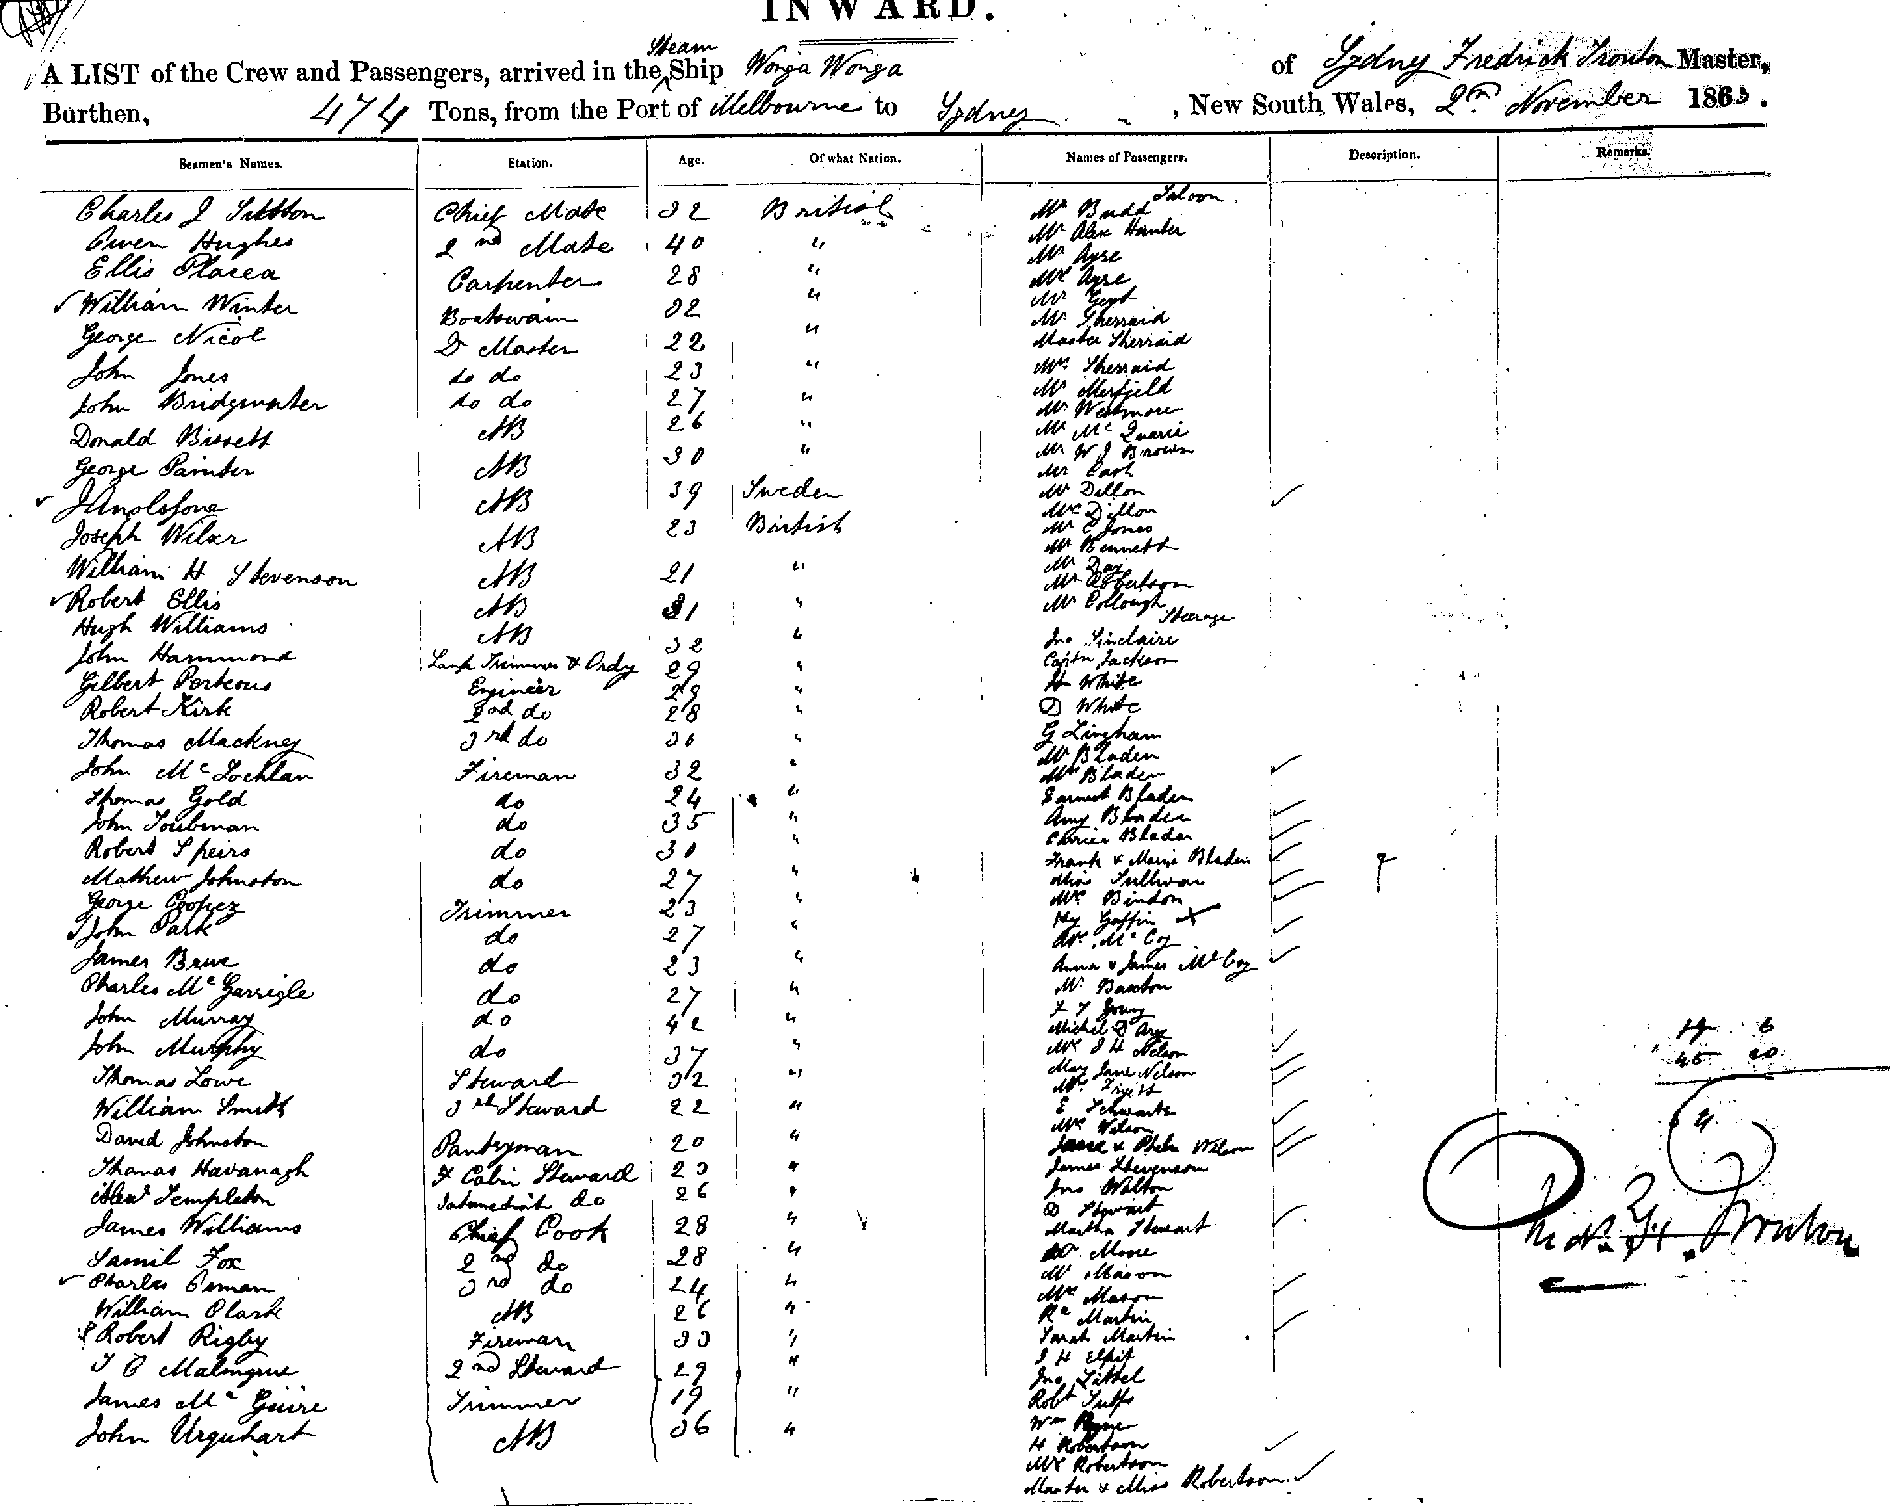 INWARD.
A LIST of the Crew and Passengers, arrived in the Steam Ship Wonga Wonga of Sydney Fredrick Trouton Master,
Burthen, 474 Tons, from the Port of Melbourne to Sydney, New South Wales, 2nd November 1863.
Seamen's Names. Station. Age. Of what Nation. Names of Passengers. Description. Remarks.
Saloon
Charles J Sutton Chief Mate 32 British Mr Budd
Owen Hughes 2nd Mate 40 " Mr Alex Hunter
Mr Ayre
Ellis Placea Carpenter 28 " Mrs Ayre
William Winter Boatswain 32 " Mr Gept
Mr Sherraid
George Nicol Qr Master 22 " Master Sherraid
John Jones do do 23 " Mrs Sherraid
Mr Merfield
John Bridgwater do do 27 " Mr Westmore
Donald Bissett AB 26 " Mr McQuarie
Mr W J Brown
George Painter AB 30 " Mr Earl
AB 39 Sweden Mr Dillon
Mrs Dillon
Joseph Wilar AB 23 British Mr C Jones
Mr Bennett
William H Stevenson AB 21 " Mr Day
Mr Robertson
Robert Ellis AB 31 " Mr Collough
Steerage
Hugh Williams AB 32 " Jno Sinclaire
John Hammond Lamp Trimmer & Ordy 29 " Captn Jackson
Gilbert Porteous Engineer 29 " H White
Robert Kirk 2nd do 28 " D White
Thomas Mackney 3rd do 31 " G Lingham
Mr Bladen
John McLochlan Fireman 32 " Mrs Bladen
Thomas Gold do 24 " Earnest Bladen
John Toubman do 35 " Amy Bladen
Carrier Bladen
Robert Speirs do 30 " Frank & Marie Bladen
Mathew Johnston do 27 " Miss Sullivan
Mrs Bindon
George Cooper Trimmer 23 " Hy Gaffin
John Park do 27 " Mrs McCoy
James Brue do 23 " Anna & James McCoy
Charles McGarrigle do 27 " Mr Buxton
John Murray do 42 " L F Young
Michel D'Arcy
John Murphy do 37 " Mrs J H Nelson
Mary Jane Nelson
Thomas Lowe Steward 32 " Mr
William Smith 3rd Steward 22 " E Schwartz
Mrs Wilson
David Johnston Pantryman 20 " & Phebe Wilson
Thomas Kavanagh F Cabin Steward 23 " James Stevenson
Alexr Templeton Intermediate do 26 " Jno Walton
D Stewart
James Williams Chief Cook 28 " Martha Stewart
Samil Fox 2nd do 28 " W Moore
Mr Mason
Charles Osman 3rd do 24 " Mrs Mason
William Clark AB 26 " Rd Martin
Robert Rigby Fireman 33 " Sarah Martin
J H Elpit
T C Malingrue 2nd Steward 29 " Jno Littel
James McGuire Trimmer 19 " Robt
Wm
John Urquhart AB 36 " H Robertson
Mrs Robertson
Master & Miss Robertson
19 6
45 20
64
Fredk. H. Trouton